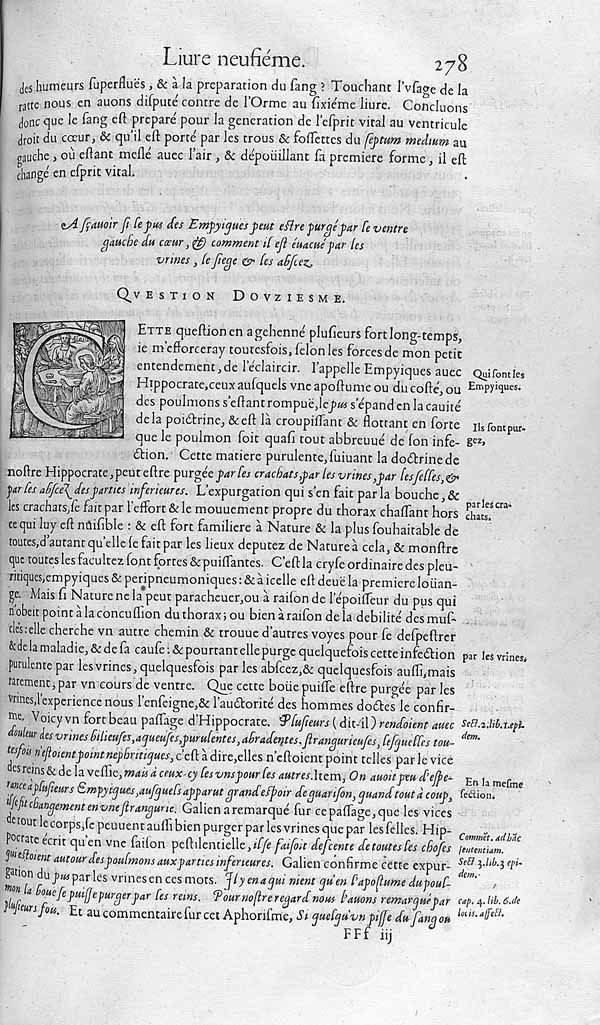 Liure neufiéme. 278
des humeurs ſuperfluës, & à la preparation du ſang? Touchant l'vſage de la
ratte nous en auons diſputé contre de l'Orme au ſixiéme liure. Concluons
donc que le ſang eſt preparé pour la generation de l'eſprit vital au ventricule
droit du cœur, & qu'il eſt porté par les trous & foſſettes du ſeptum medium au
gauche, où eſtant meſlé auec l'air, & dépoüillant ſa premiere forme, il eſt
changé en eſprit vital.
A ſçauoir ſi le pus des Empyiques peut eſtre purgé par le ventre
gauche du cœur, & comment il eſt éuacué par les
vrines, le ſiege & les abſcez,
QVESTION DOVZIESME.
CETTE queſtion en a gehenné pluſieurs fort long-temps,
ie m'efforceray toutesfois, ſelon les forces de mon petit
entendement, de l'éclaircir. I'appelle Empyiques auec
Qui ſont les
Hippocrate, ceux auſquels vne apoſtume ou du coſté, ou
Empyiques.
des poulmons s'eſtant rompuë, le pus s'épand en la cauité
de la poictrine, & eſt là croupiſſant & flottant en ſorte
Ils ſont pur-
que le poulmon ſoit quaſi tout abbreuué de ſon infe-
gez,
ction. Cette matiere purulente, ſuiuant la doctrine de
noſtre Hippocrate, peut eſtre purgée par les crachats, par les vrines, par les ſelles, &
par les abſcez des parties inferieures. L'expurgation qui s'en fait par la bouche, &
les crachats, ſe fait par l'effort & le mouuement propre du thorax chaſſant hors
par les cra-
chats.
ce qui luy eſt nuiſible: & eſt fort familiere à Nature & la plus ſouhaitable de
toutes, d'autant qu'elle ſe fait par les lieux deputez de Nature à cela, & monſtre
que toutes les facultez ſont fortes & puiſſantes. C'eſt la cryſe ordinaire des pleu-
ritiques, empyiques & peripneumoniques: & à icelle eſt deuë la premiere loüan-
ge. Mais ſi Nature ne la peut paracheuer, ou à raiſon de l'époiſſeur du pus qui
n'obeit point à la concuſſion du thorax; ou bien à raiſon de la debilité des muſ-
cles: elle cherche vn autre chemin & trouue d'autres voyes pour ſe deſpeſtrer
& de la maladie, & de ſa cauſe: & pourtant elle purge quelquefois cette infection
par les vrines,
purulente par les vrines, quelquesfois par les abſcez, & quelquesfois auſſi, mais
rarement, par vn cours de ventre. Que cette boüe puiſſe eſtre purgée par les
vrines, l'experience nous l'enſeigne, & l'auctorité des hommes doctes le confir-
me. Voicy vn fort beau paſſage d'Hippocrate. Pluſieurs (dit-il) rendoient auec
Sect. 2. lib. 1. epi-
dem.
douleur des vrines bilieuſes, aqueuſes, purulentes, abradentes, ſtrangurieuſes, leſquelles tou-
tesfois n'eſtoient point nephritiques, c'eſt à dire, elles n'eſtoient point telles par le vice
des reins & de la veſſie, mais à ceux-cy les vns pour les autres. Item, On auoit peu d'eſpe-
rance à pluſieurs Empyiques, auſquels apparut grand eſpoir de guariſon, quand tout à coup,
En la meſme
ſection.
il ſe fit changement en vne ſtrangurie. Galien a remarqué ſur ce paſſage, que les vices
de tout le corps, ſe peuuent auſſi bien purger par les vrines que par les ſelles. Hip-
pocrate écrit qu'en vne ſaiſon peſtilentielle, il ſe faiſoit deſcente de toutes les choſes
Commēt. ad hāc
ſententiam.
qui eſtoient autour des poulmons aux parties inferieures. Galien confirme cette expur-
Sect. 3. lib. 3 epi-
dem.
gation du pus par les vrines en ces mots. Il y en a qui nient qu'en l'apoſtume du poul-
mon la boue ſe puiſſe purger par les reins. Pour noſtre regard nous l'auons remarqué par
cap. 4. lib. 6. de
locis. affect.
pluſieurs fois. Et au commentaire ſur cet Aphoriſme, Si quelqu'vn piſſe du ſang ou
FFf iij